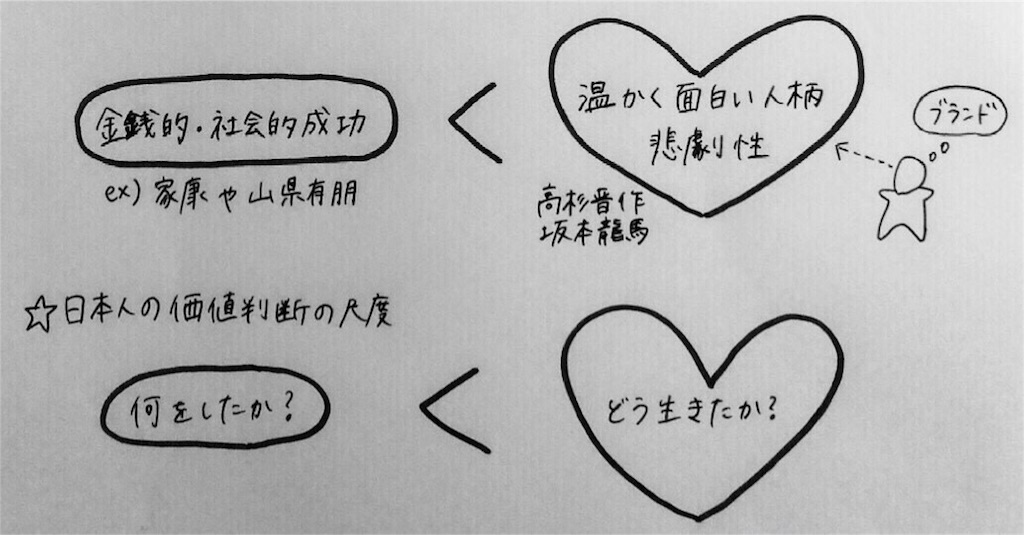 金銭的・社会的成功
<
温かく面白い人柄
悲劇性
ブランド
ex) 家康や山県有朋
高杉晋作
坂本龍馬
☆日本人の価値判断の尺度
何をしたか?
<
どう生きたか?